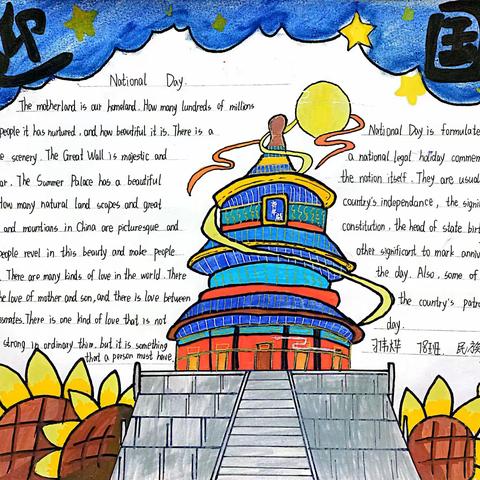 迎
国
Notional Day.
The motherland is our homeland. How many lundreds of millions
people it has nurtured, and how beautiful it is. There is a
scenery. The Great Wall is majestic and
The Summer Palace has a beautiful
How many natural land scapes and great
and mountians in China are picturesque and
people revel in this beauty and make people
There are many kinds of love in the world. There
the love of mother and son, and there is love between
There is one kind of love that is not
strong in ordinary thim, but it is something
that a person must have.
National Day is formulate
a national legal holiday commem
the nation itself. They are usual
country's independence, the signi
constitution, the head of state birt
other significant to mark anniv
the day. Also, some of
the country's patro
day.